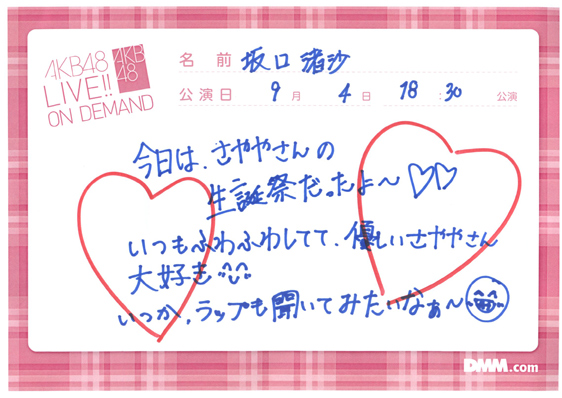 AKB48
LIVE!!
ON DEMAND
AKB
48
名前 坂口 渚沙
公演日 9月 4日 18:30 公演
今日は、さややさんの
生誕祭だったよ〜♡♡
いつもふわふわしてて、優しいさややさん
大好き
いつか、ラップも聞いてみたいなぁ〜
DMM.com